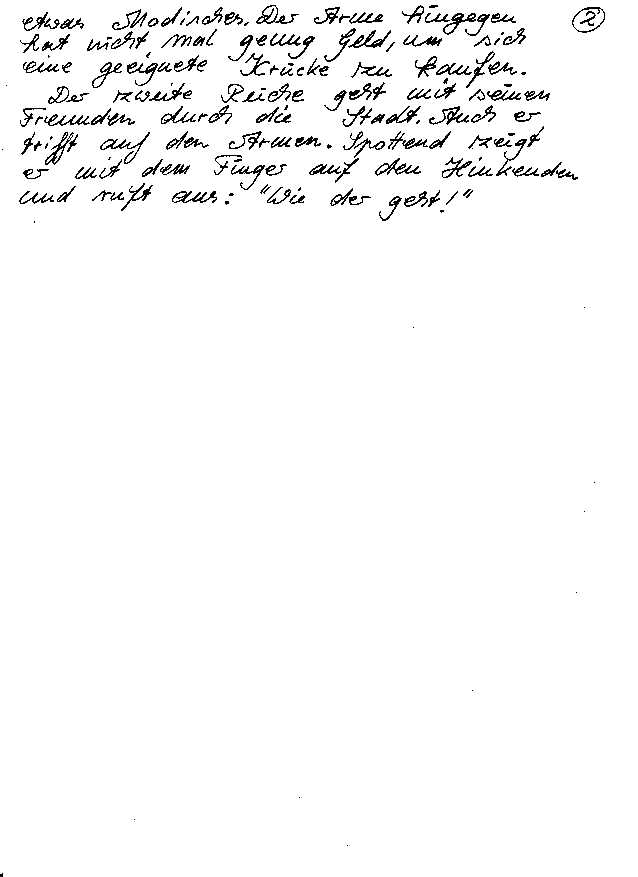 etwas Modisches. Der Arme hingegen
②
hat nicht mal genug Geld, um sich
eine geeignete Krücke zu kaufen.
Der zweite Reiche geht mit seinen
Freunden durch die Stadt. Auch er
trifft auf den Armen. Spottend zeigt
er mit dem Finger auf den Hinkenden
und ruft aus: "Wie der geht!"